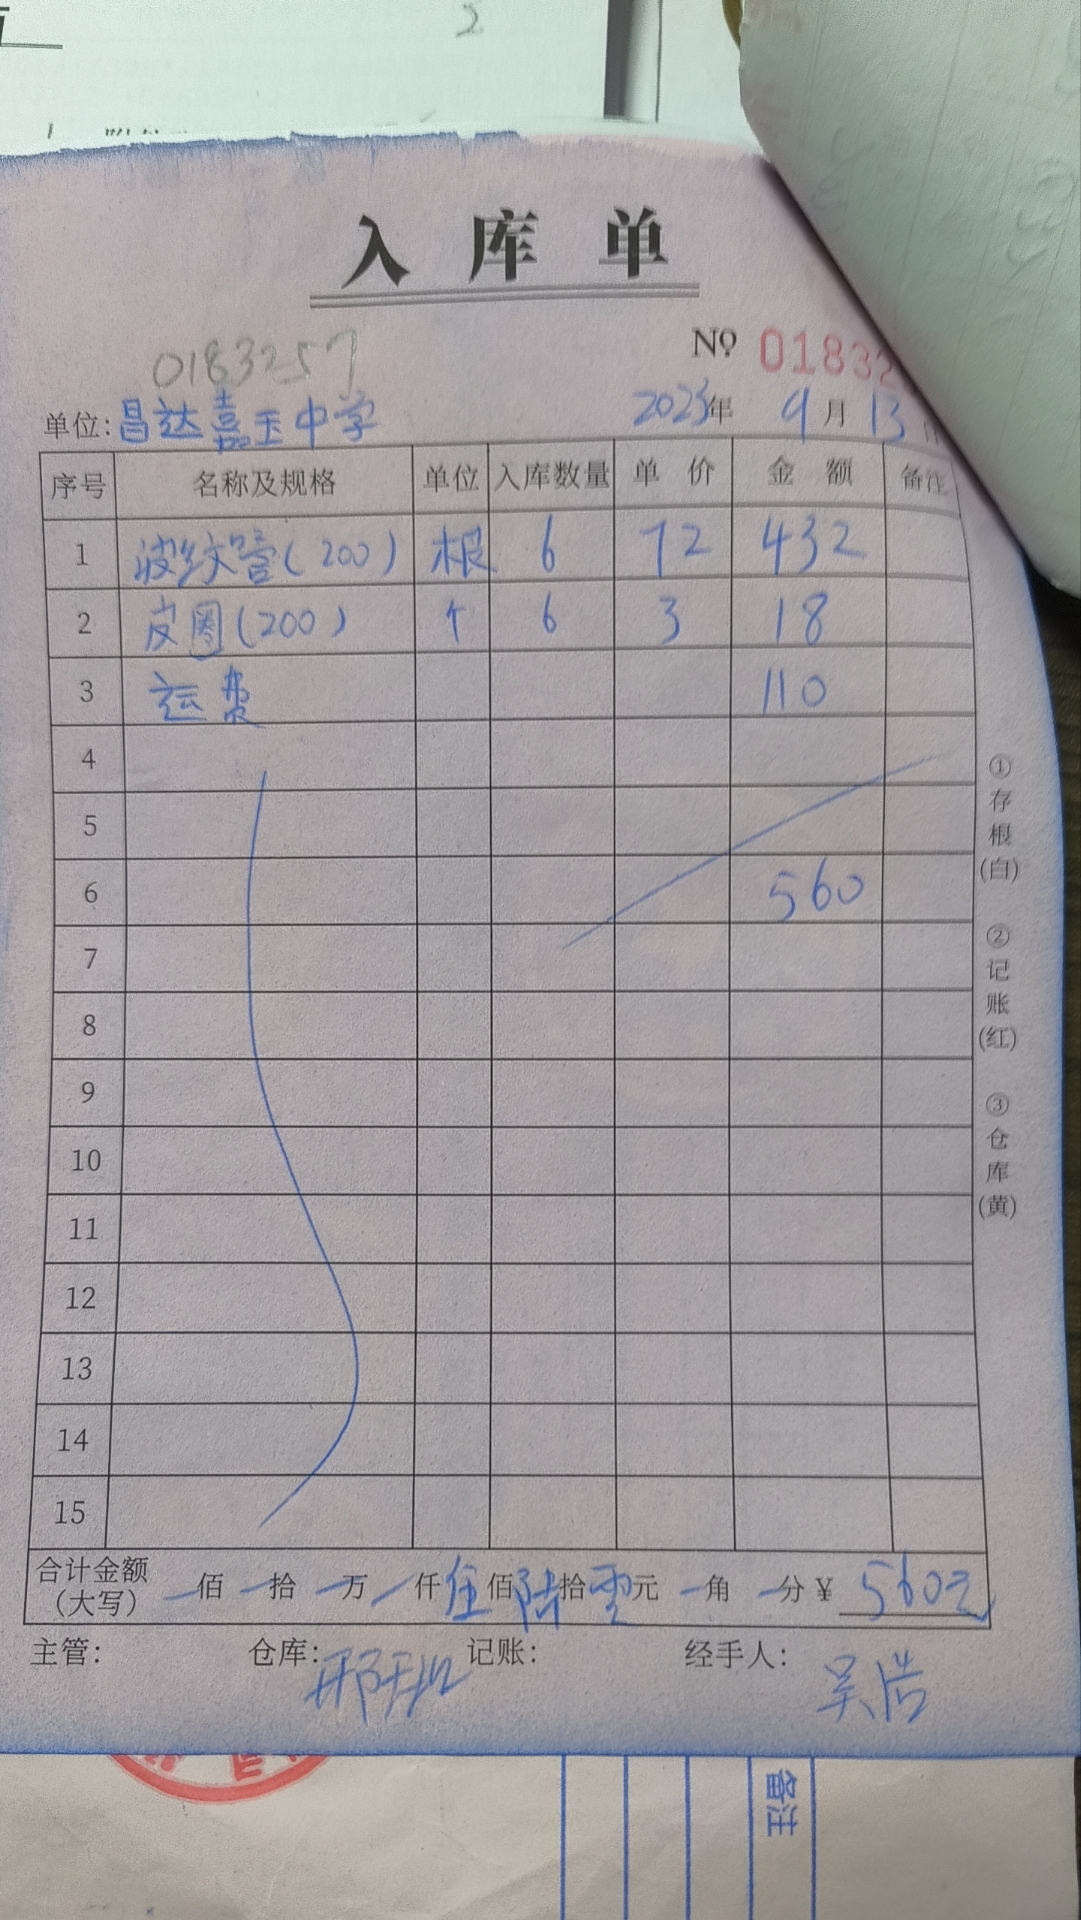 2
入库单
0183257
№ 01832
单位:昌达嘉玉中学 2023年 9月 13
序号 名称及规格 单位 入库数量 单价 金额 备注
1 波纹管(200) 根 6 72 432
2 皮圈(200) 个 6 3 18
3 运费 110
4
5
6 560
7
8
9
10
11
12
13
14
15
合计金额(大写) 佰 拾 万 仟 伍佰 陆拾 零元 角 分 ¥ 560元
主管: 仓库: 记账: 经手人: 吴浩
①存根(白) ②记账(红) ③仓库(黄)
备注